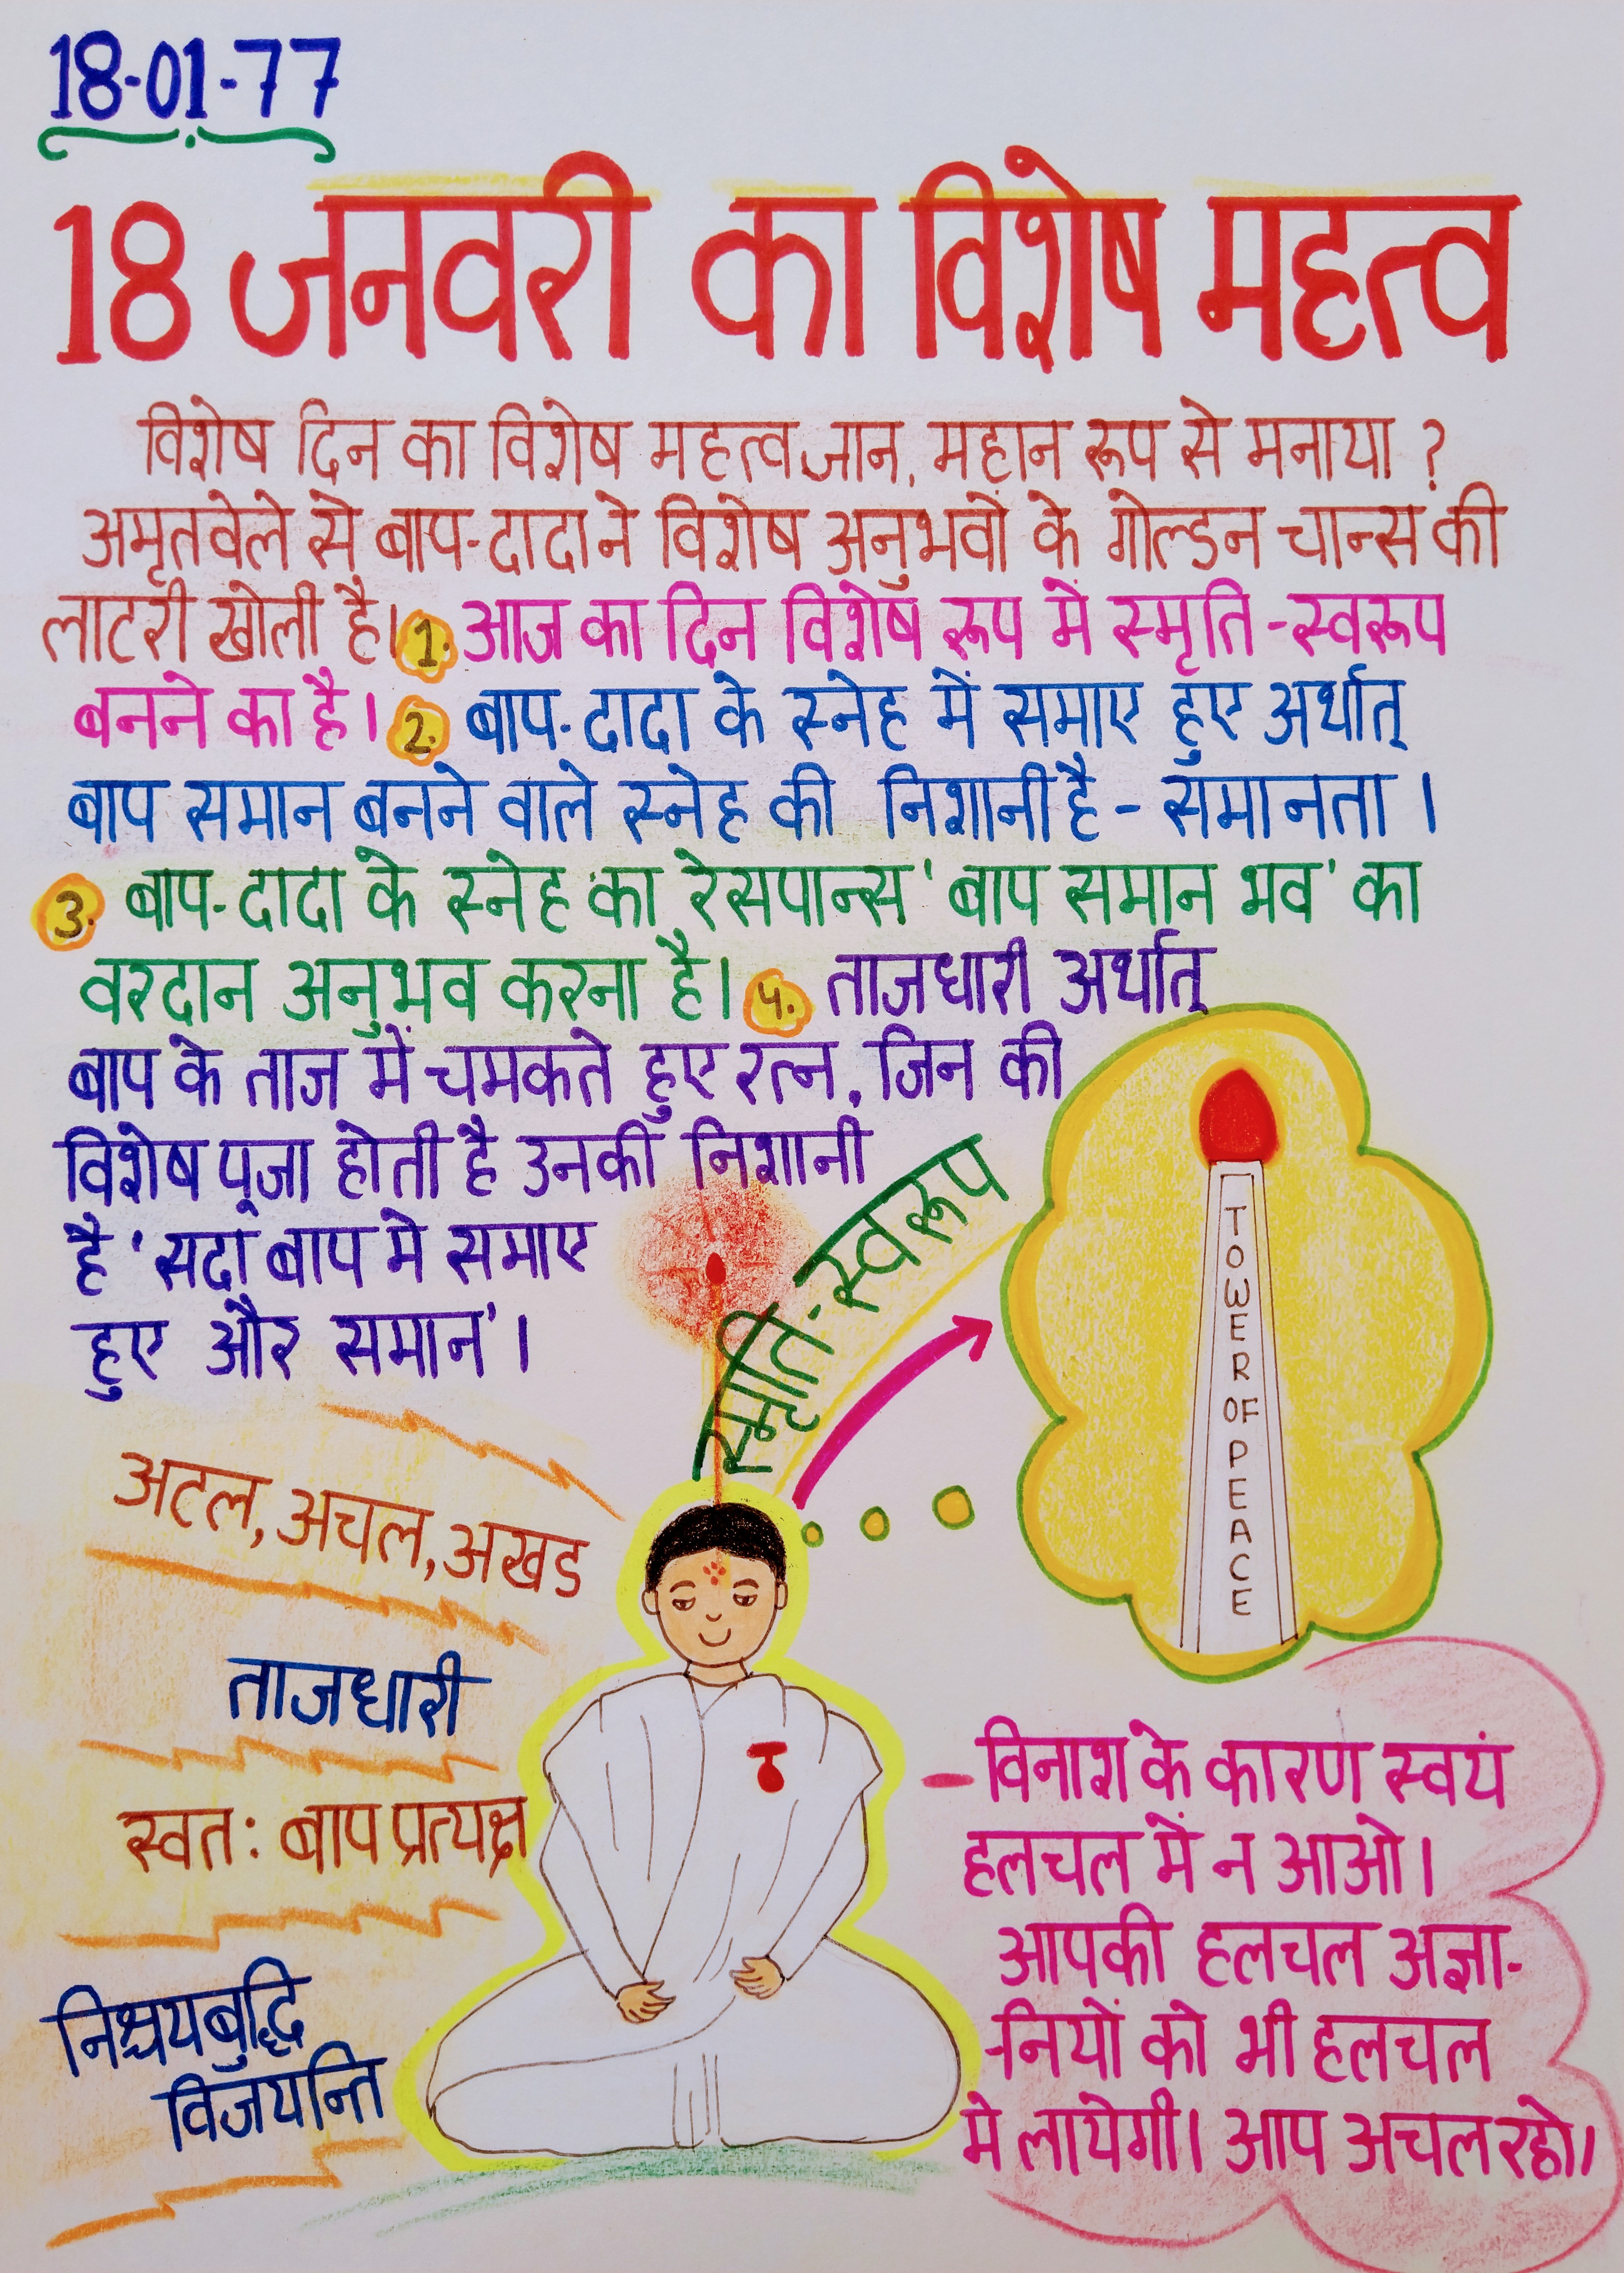 18-01-77
18 जनवरी का विशेष महत्व
विशेष दिन का विशेष महत्व जान, महान रूप से मनाया ?
अमृतवेले से बाप-दादा ने विशेष अनुभवों के गोल्डन चान्स की
लाटरी खोली है। 1. आज का दिन विशेष रूप में स्मृति-स्वरूप
बनने का है। 2. बाप-दादा के स्नेह में समाए हुए अर्थात्
बाप समान बनने वाले स्नेह की निशानी है - समानता ।
3. बाप-दादा के स्नेह का रेसपान्स 'बाप समान भव' का
वरदान अनुभव करना है। 4. ताजधारी अर्थात्
बाप के ताज में चमकते हुए रत्न, जिन की
विशेष पूजा होती है उनकी निशानी
है 'सदा बाप मे समाए
हुए और समान'।
स्मृति-स्वरूप
TOWER OF PEACE
अटल, अचल, अखड
ताजधारी
स्वत: बाप प्रत्यक्ष
निश्चयबुद्धि
विजयन्ति
- विनाश के कारण स्वयं
हलचल में न आओ।
आपकी हलचल अज्ञा-
-नियों को भी हलचल
मे लायेगी। आप अचल रहो।